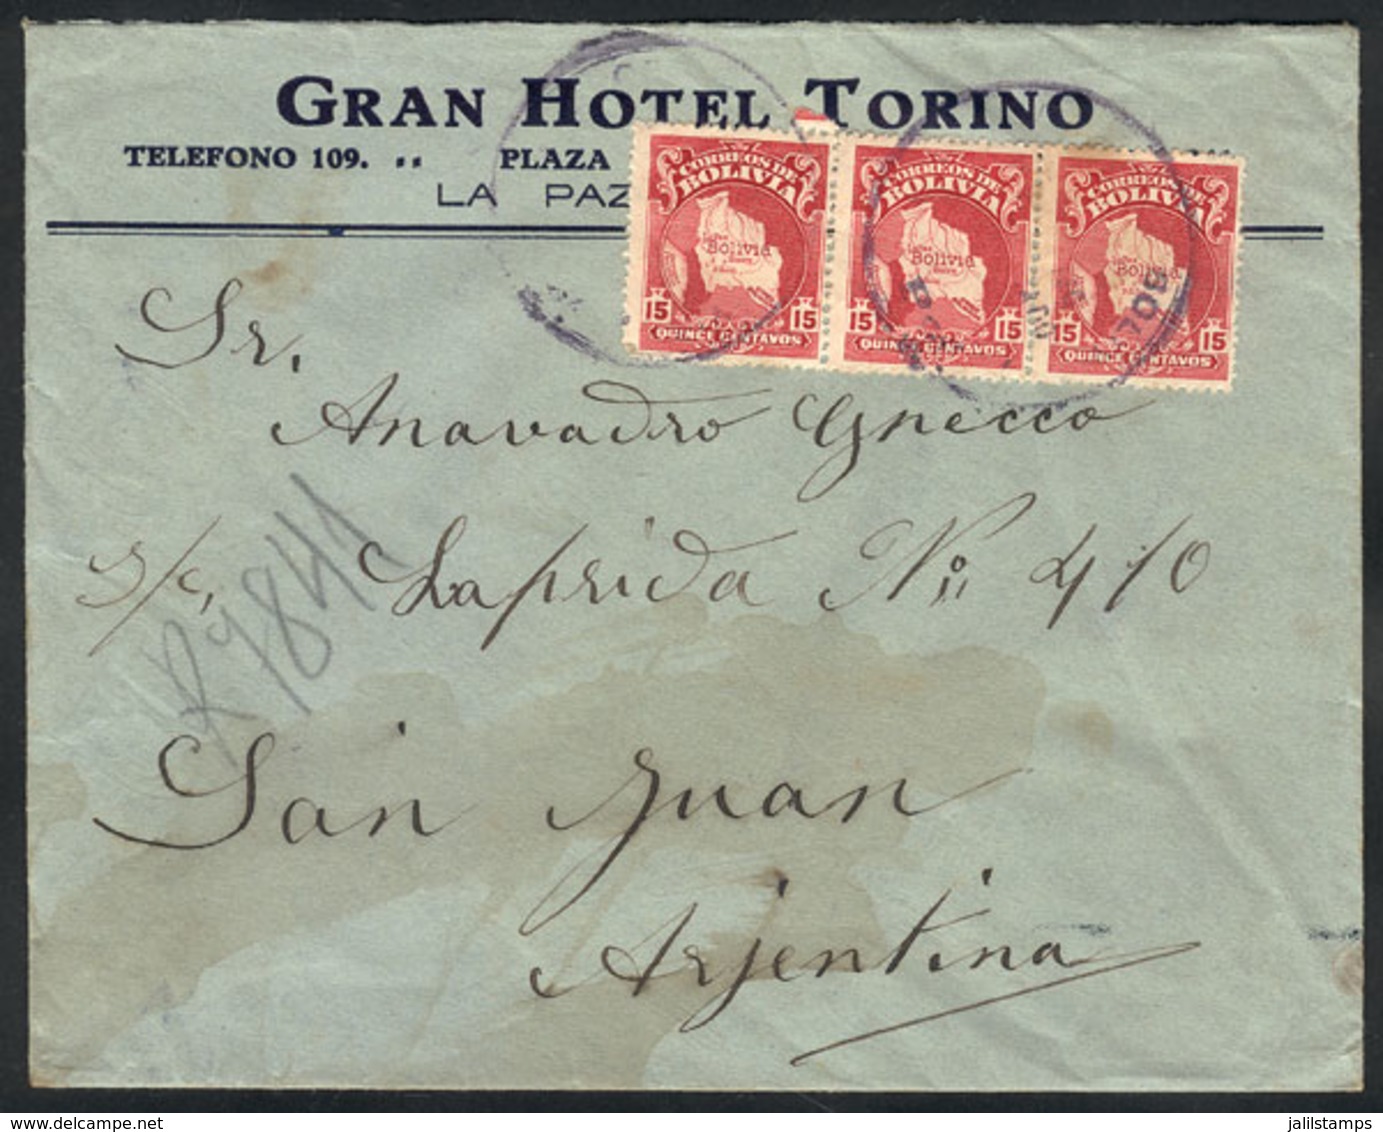 GRAN HOTEL TORINO
TELEFONO 109. PLAZA
LA PAZ
CORREOS DE BOLIVIA
Bolivia
15 15
QUINCE CENTAVOS
CORREOS DE BOLIVIA
Bolivia
15 15
QUINCE CENTAVOS
CORREOS DE BOLIVIA
Bolivia
15 15
QUINCE CENTAVOS
Sr.
Anavadro Gnecco
s/c, Laprida No. 410
R9841
San Juan
Arjentina
jalilstamps